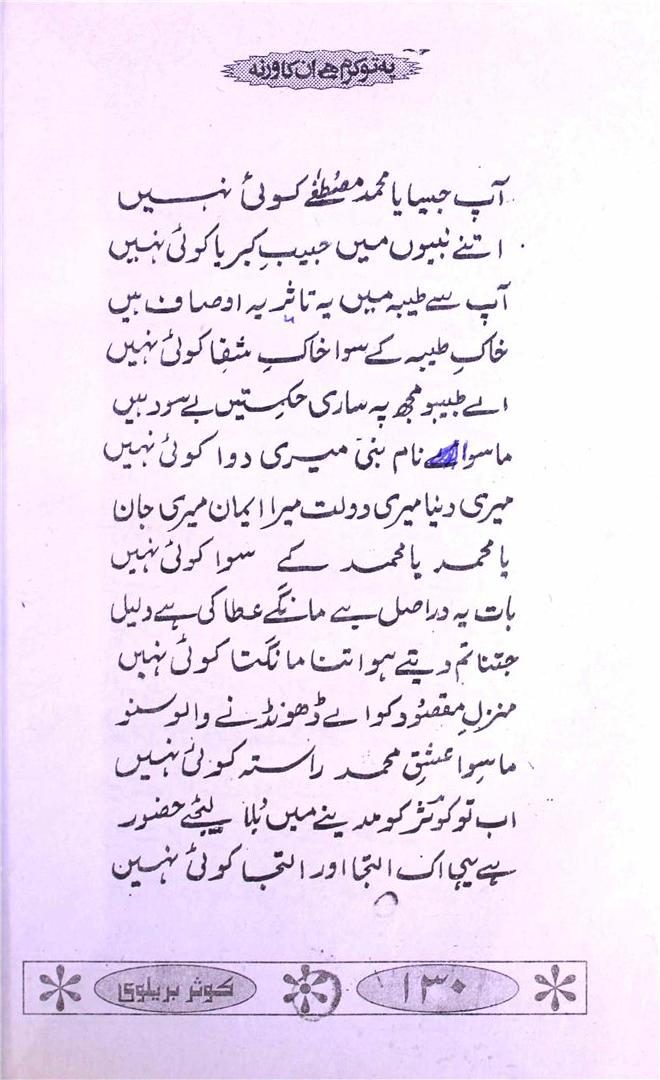 یہ تو کرم ہے ان کا ورنہ
آپ جیسا یا محمد مصطفٰے کوئی نہیں
اتنے نبیوں میں حبیبِ کبریا کوئی نہیں
آپ سے طیبہ میں یہ تاثیر یہ اوصاف ہیں
خاکِ طیبہ کے سوا خاکِ شفا کوئی نہیں
اے طبیبو مجھ پہ ساری حکمتیں بے سود ہیں
ماسوائے نام نبیؐ میری دوا کوئی نہیں
میری دنیا میری دولت میرا ایمان میری جان
یا محمد یا محمد کے سوا کوئی نہیں
بات یہ دراصل بے مانگے عطا کی ہے دلیل
جتنا تم دیتے ہو اتنا مانگتا کوئی نہیں
منزلِ مقصود کو اے ڈھونڈنے والو سنو
ماسِوا عشقِ محمد راستہ کوئی نہیں
اب تو کوثر کو مدینے میں بُلا لیجئے حضور
ہے یہی اک التجا اور التجا کوئی نہیں
کوثر بریلوی
۱۳۰